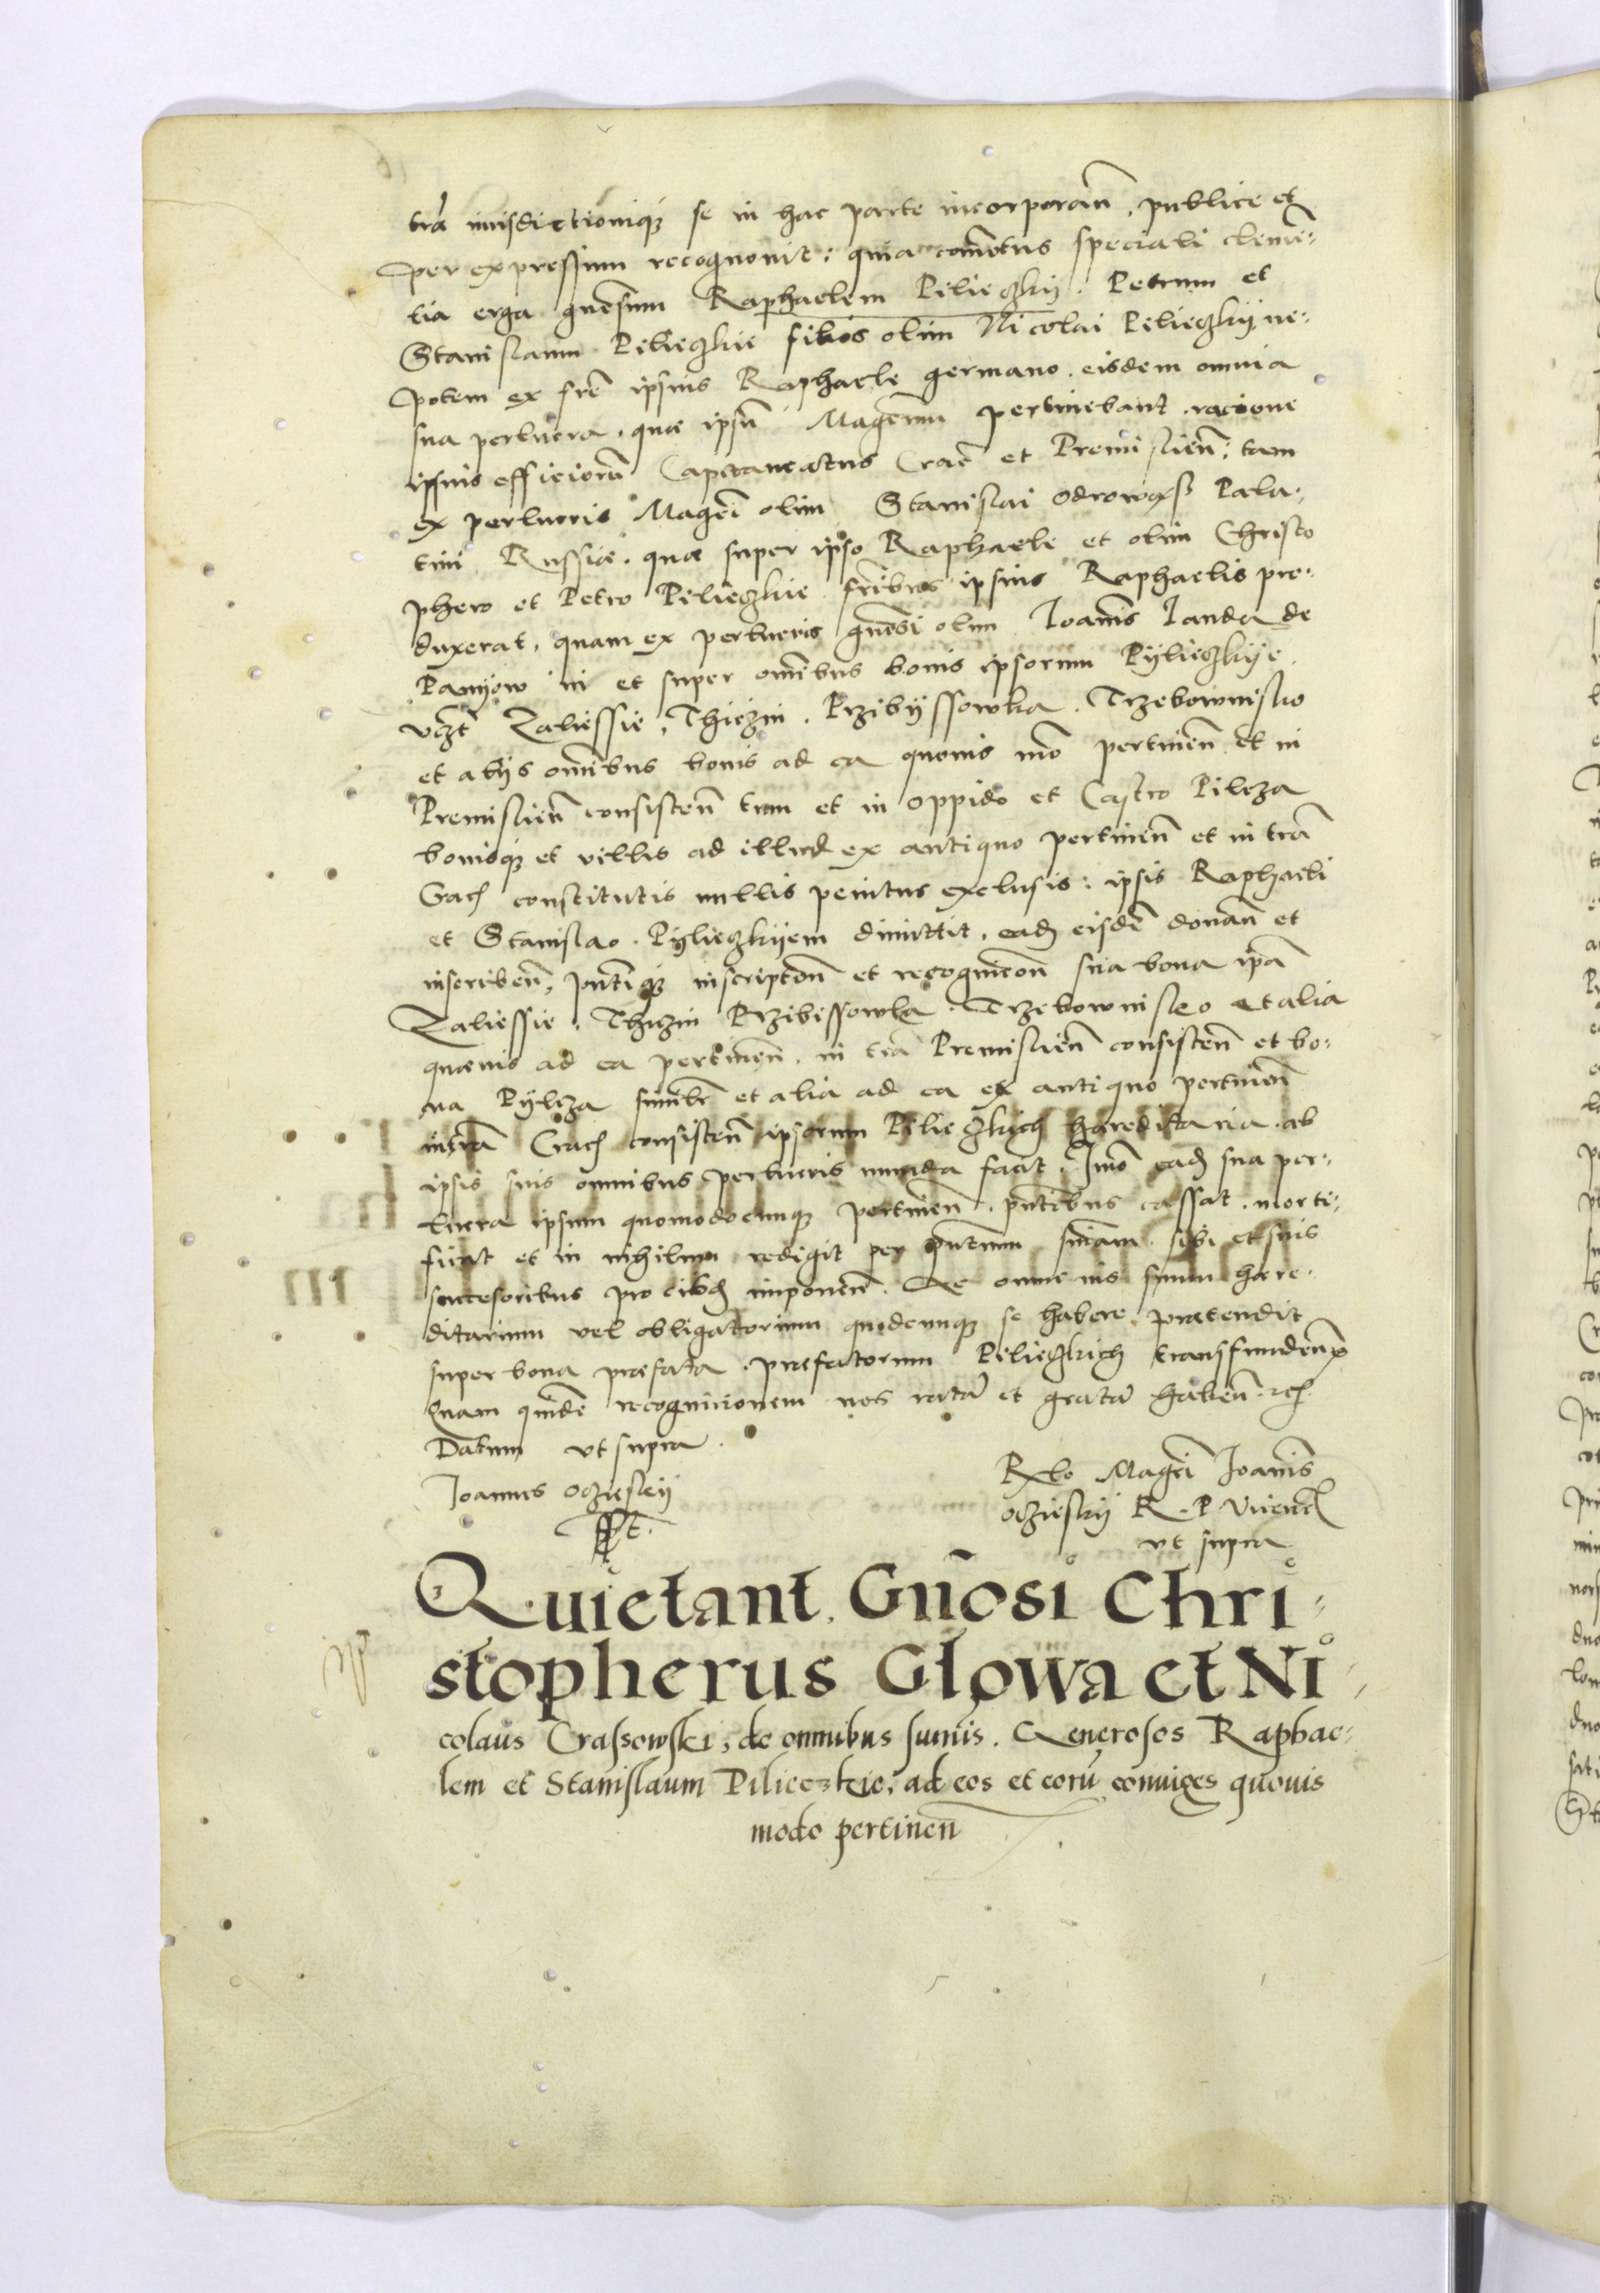 trã iurisdictioniq se in hac parte incorporañ, publice et
per expressum recognouit: quia comotus speciali clemẽ=
tia erga gnosum Raphaelem Pilieczkij. Petrum et
Stanislaum Pilieczkie filios olim Nicolai Pilieczkij ne=
potem ex frẽ ipsius Raphaele germano. eisdem omnia
sua perlucra. quæ ipsũ Magcum pertinebant. racione
ipsius officiorũ Capitaneatus Crac et Premislieñ: tam
ex perlucris Magci olim Stanislai Odrowqsz Pala=
tini Russiæ. quæ super ipso Raphaele et olim Christo
phero et Petro Pilieczkie fribus ipsius Raphaelis pro=
duxerat, quam ex perlucris gnosi olim Ioanis Ianda de
Panijow in et super omibus bonis ipsorum Pijlieczkije.
vczt Zaliessie, Thiczin. Przibijssowka. Trzebownisko
et alijs omibus bonis ad ea quouis mo pertineñ et in
Premislieñ consisteñ tum et in oppido et Castro Pilcza
bonisq et villis ad illud ex antiquo pertineñ et in trã
Crac constitutis nullis penitus exclusis: ipsis Raphaeli
et Stanislao Pijlieczkijem dimittit. ead eisdẽ donañ et
inscribeñ, pntiq inscriptioñ et recognicoñ sua bona ipã
Zaliessie. Thiczin Przibissowka. Trzebownisko et alia
quæuis ad ea pertineñ. in trã Premislieñ consisteñ et bo=
na Pijlcza similr et alia ad ea ex antiquo pertineñ
in trã Crac consisteñ ipsorum Pilieczkich hæreditaria. ab
ipsis suis omnibus perlucris munda facit. Imo ead sua per=
lucra ipsum quomodocunq pertineñ. pntibus cassat. morti=
ficat et in nihilum redigit per pntem suam. sibi et suis
succesoribus imponeñ. Ac omne ius suum hære=
ditarium vel obligatorium quodcunq se habere prætendit
super bona præfata. præfatorum Pilieczkich transfundeñ
Quam quidẽ recognicionem nos ratã et gratã habeñ. etc
Datum vt supra.
Ioannes Oczieskij
sst.
Rlo Magci Ioanis
Oczieskij R. P. Vicenc
vt supra
Quietant Gñosi Chri=
stopherus Glowa et Ni=
colaus Crassowski, de omnibus sumis. Generosos Raphae=
lem et Stanislaum Pilieczkie, ad eos et eorũ coniuges quouis
modo pertineñ